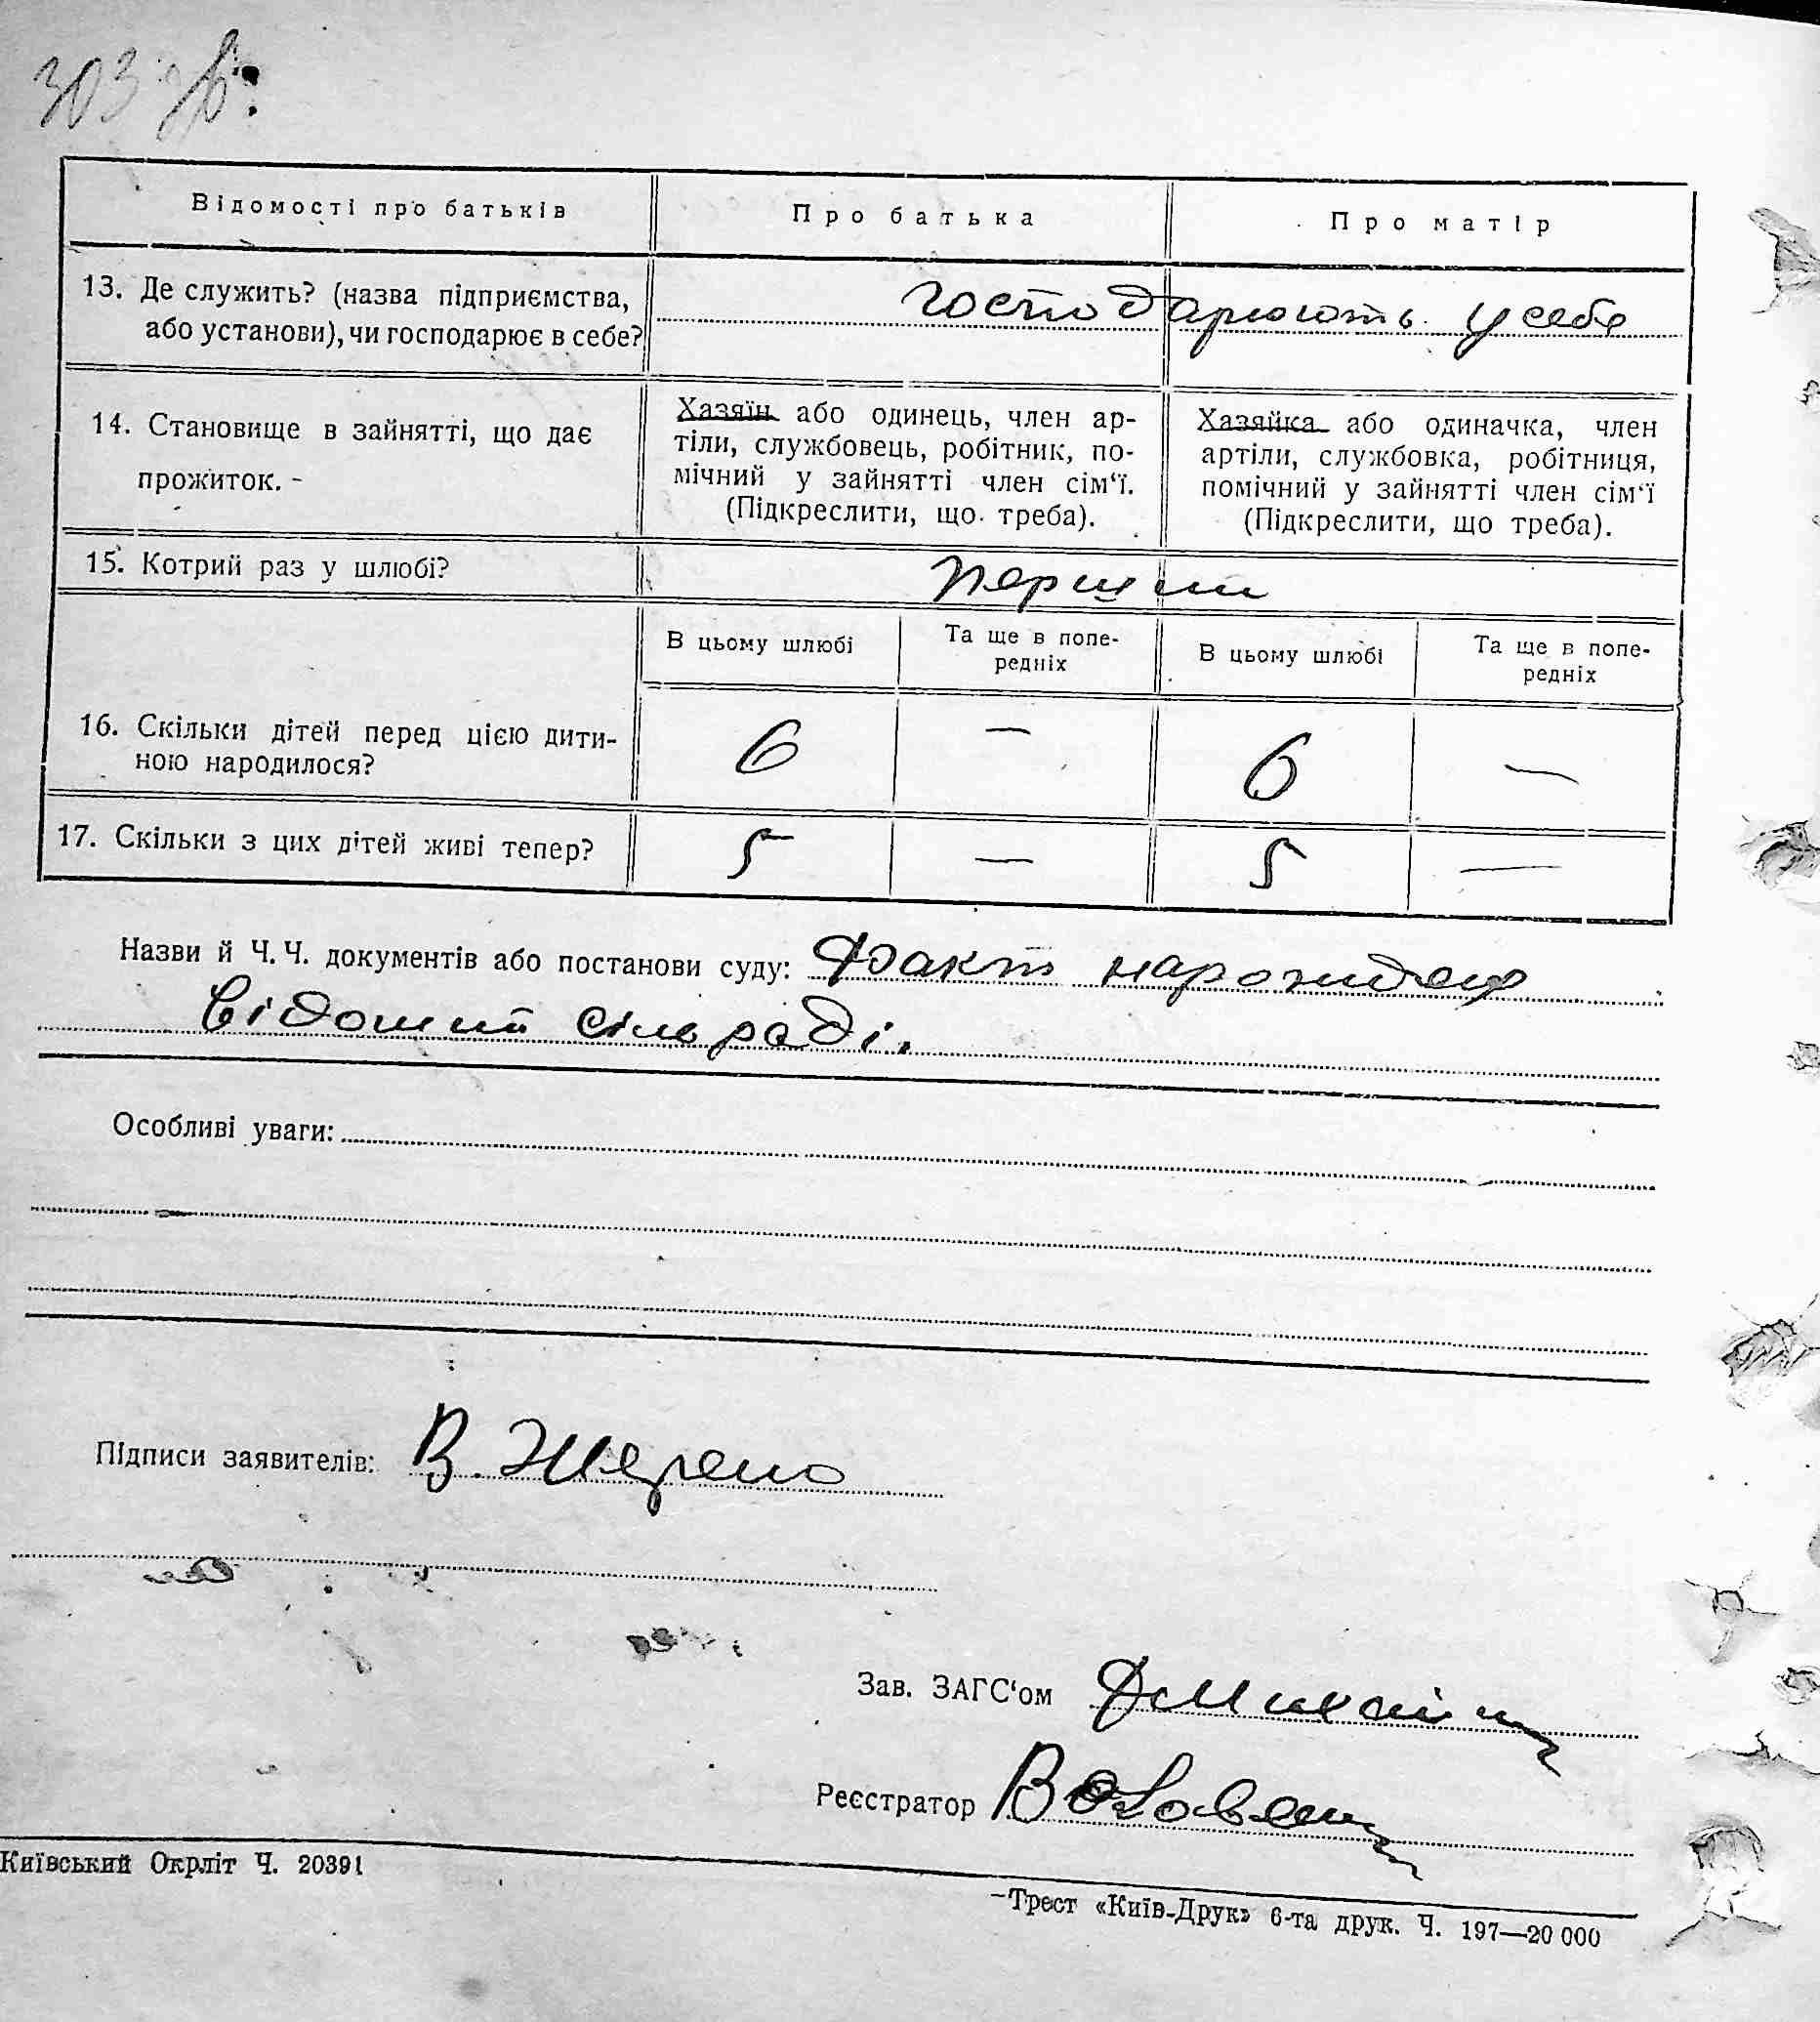 303 зв.
Відомості про батьків
Про батька
Про матір
13. Де служить? (назва підприємства,
або установи), чи господарює в себе?
господарюють у себе
14. Становище в зайнятті, що дає
прожиток. -
Хазяїн або одинець, член ар-
тіли, службовець, робітник, по-
мічний у зайнятті член сім‘ї.
(Підкреслити, що треба).
Хазяйка або одиначка, член
артіли, службовка, робітниця,
помічний у зайнятті член сім‘ї
(Підкреслити, що треба).
15. Котрий раз у шлюбі?
Перший
В цьому шлюбі
Та ще в попе-
редніх
В цьому шлюбі
Та ще в попе-
редніх
16. Скільки дітей перед цією дити-
ною народилося?
6 — 6 —
17. Скільки з цих дітей живі тепер?
5 — 5 —
Назви й Ч. Ч. документів або постанови суду: Факт
відомий сільраді.
Особливі уваги:
Підписи заявителів: В.
Зав. ЗАГС‘ом
Реєстратор
Київський Окрліт Ч. 20391
Трест «Київ-Друк» 6-та друк. Ч. 197—20 000